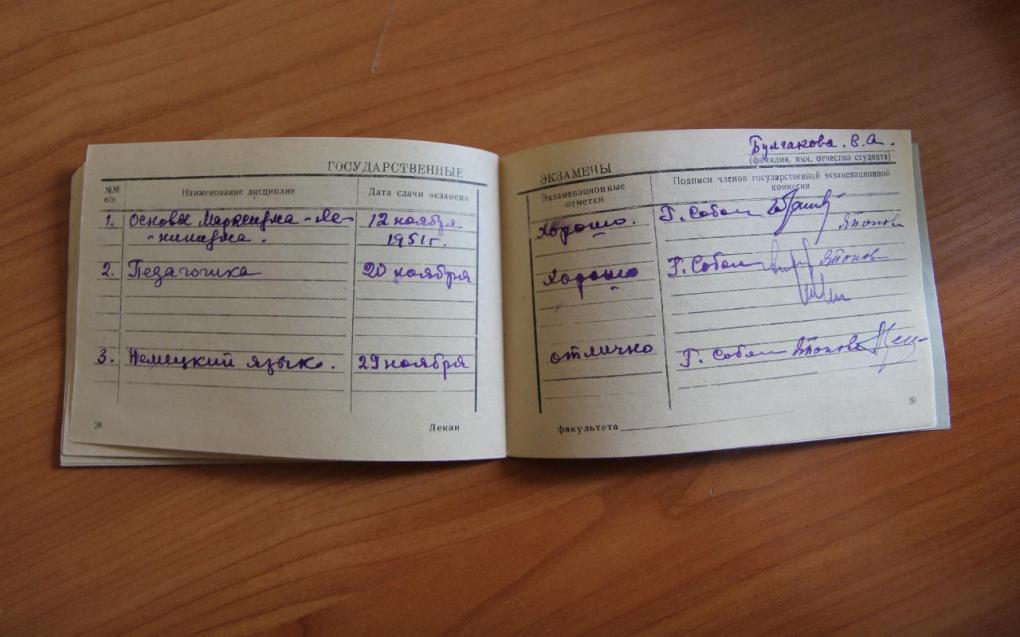 ГОСУДАРСТВЕННЫЕ
№№ п/п
Наименование дисциплин
Дата сдачи экзамена
1. Основы Марксизма-Ле-
-нинизма.
12 ноября
1951г.
2. Педагогика
20 ноября
3. Немецкий язык.
29 ноября
28
Декан
Булгакова. В.А.
(фамилия, имя, отчество студента)
ЭКЗАМЕНЫ
Экзаменационные
отметки
Подписи членов государственной экзаменационной
комиссии
хорошо. Г. Собол
хорошо Г. Собол
отлично Г. Собол
29
факультета